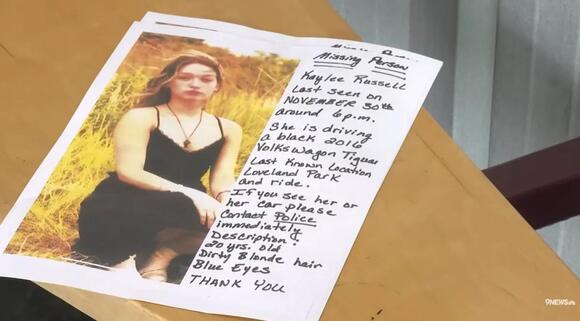 Missing Person
Kaylee Russell
Last seen on
NOVEMBER 30th
around 6p.m.
She is driving
a black 2016
VolksWagon Tiguan
Last Known Location
Loveland Park
and ride.
If you see her or
her car please
Contact Police
immediately
Description:
20 yrs. old
Dirty Blonde hair
Blue Eyes
THANK YOU
9NEWS